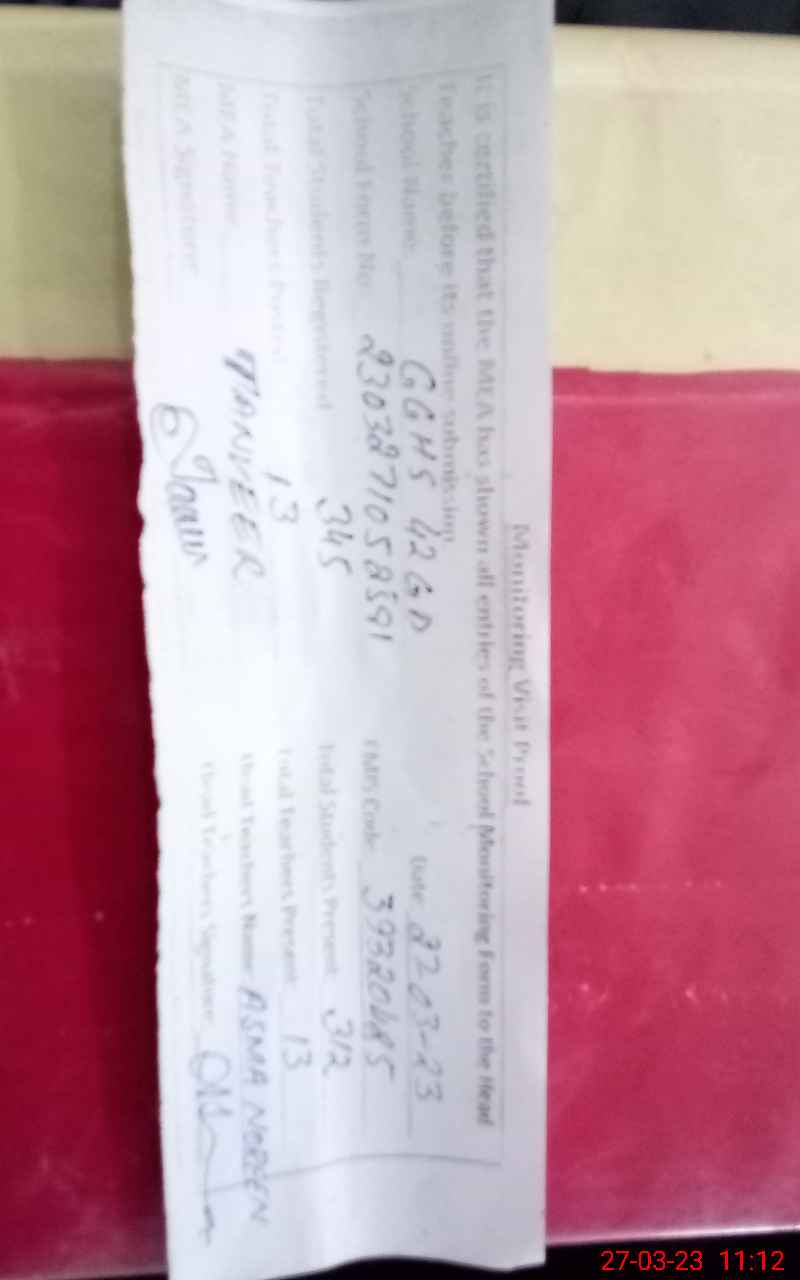 Monitoring Visit Proof
It is certified that the MEA has shown all entries of the School Monitoring Form to the Head
Teacher before its online submission
School Name: GGHS 42 GD Date 27-03-23
School Form No: 2303271058591 EMIS Code 39320485
Total Students Registered 345 Total Students Present 312
Total Teachers Posted 13 Total Teachers Present 13
MEA Name: TANVEER Head Teachers Name ASMA NOREEN
MEA Signature Head Teachers Signature
27-03-23 11:12